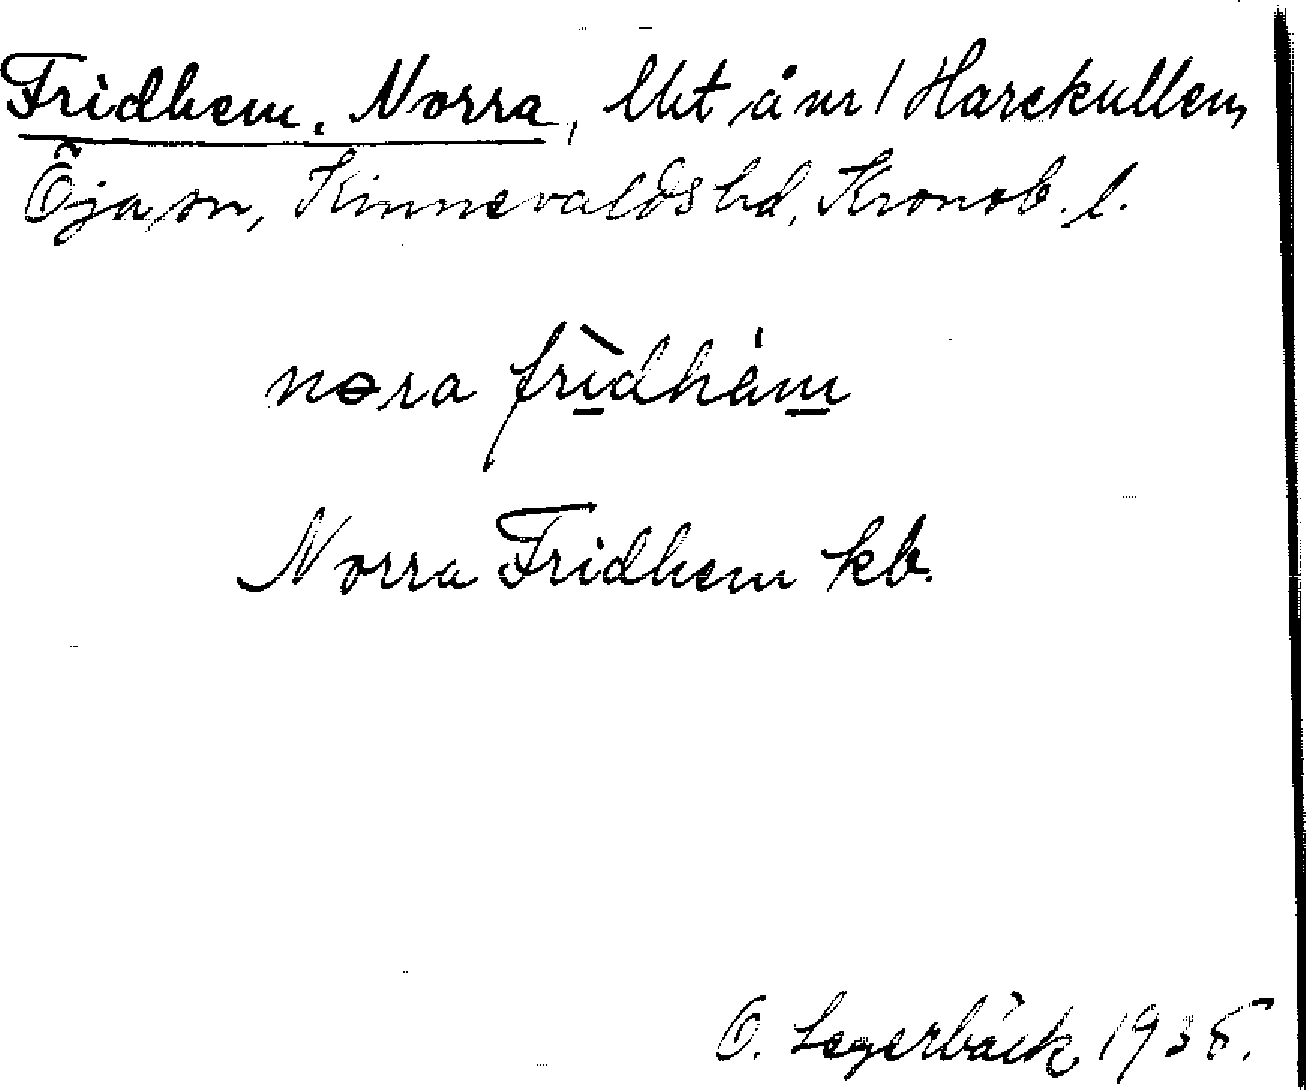 Fridhem, Norra, lht å nr 1 Harekullen,
Öja sn, Kinnevalds hd, Kronob. l.
nora fridhäm
Norra Fridhem kb.
O. Segerbäck 1935.